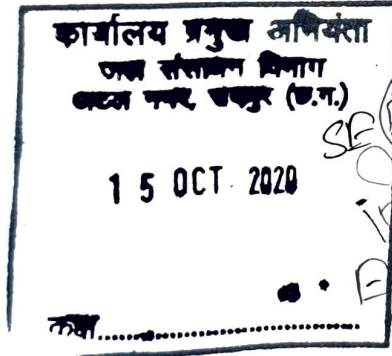 कार्यालय प्रमुख अभियंता
जल संसाधन विभाग
अटल नगर, रायपुर (छ.ग.)
SE
15 OCT 2020
कक्ष..............................